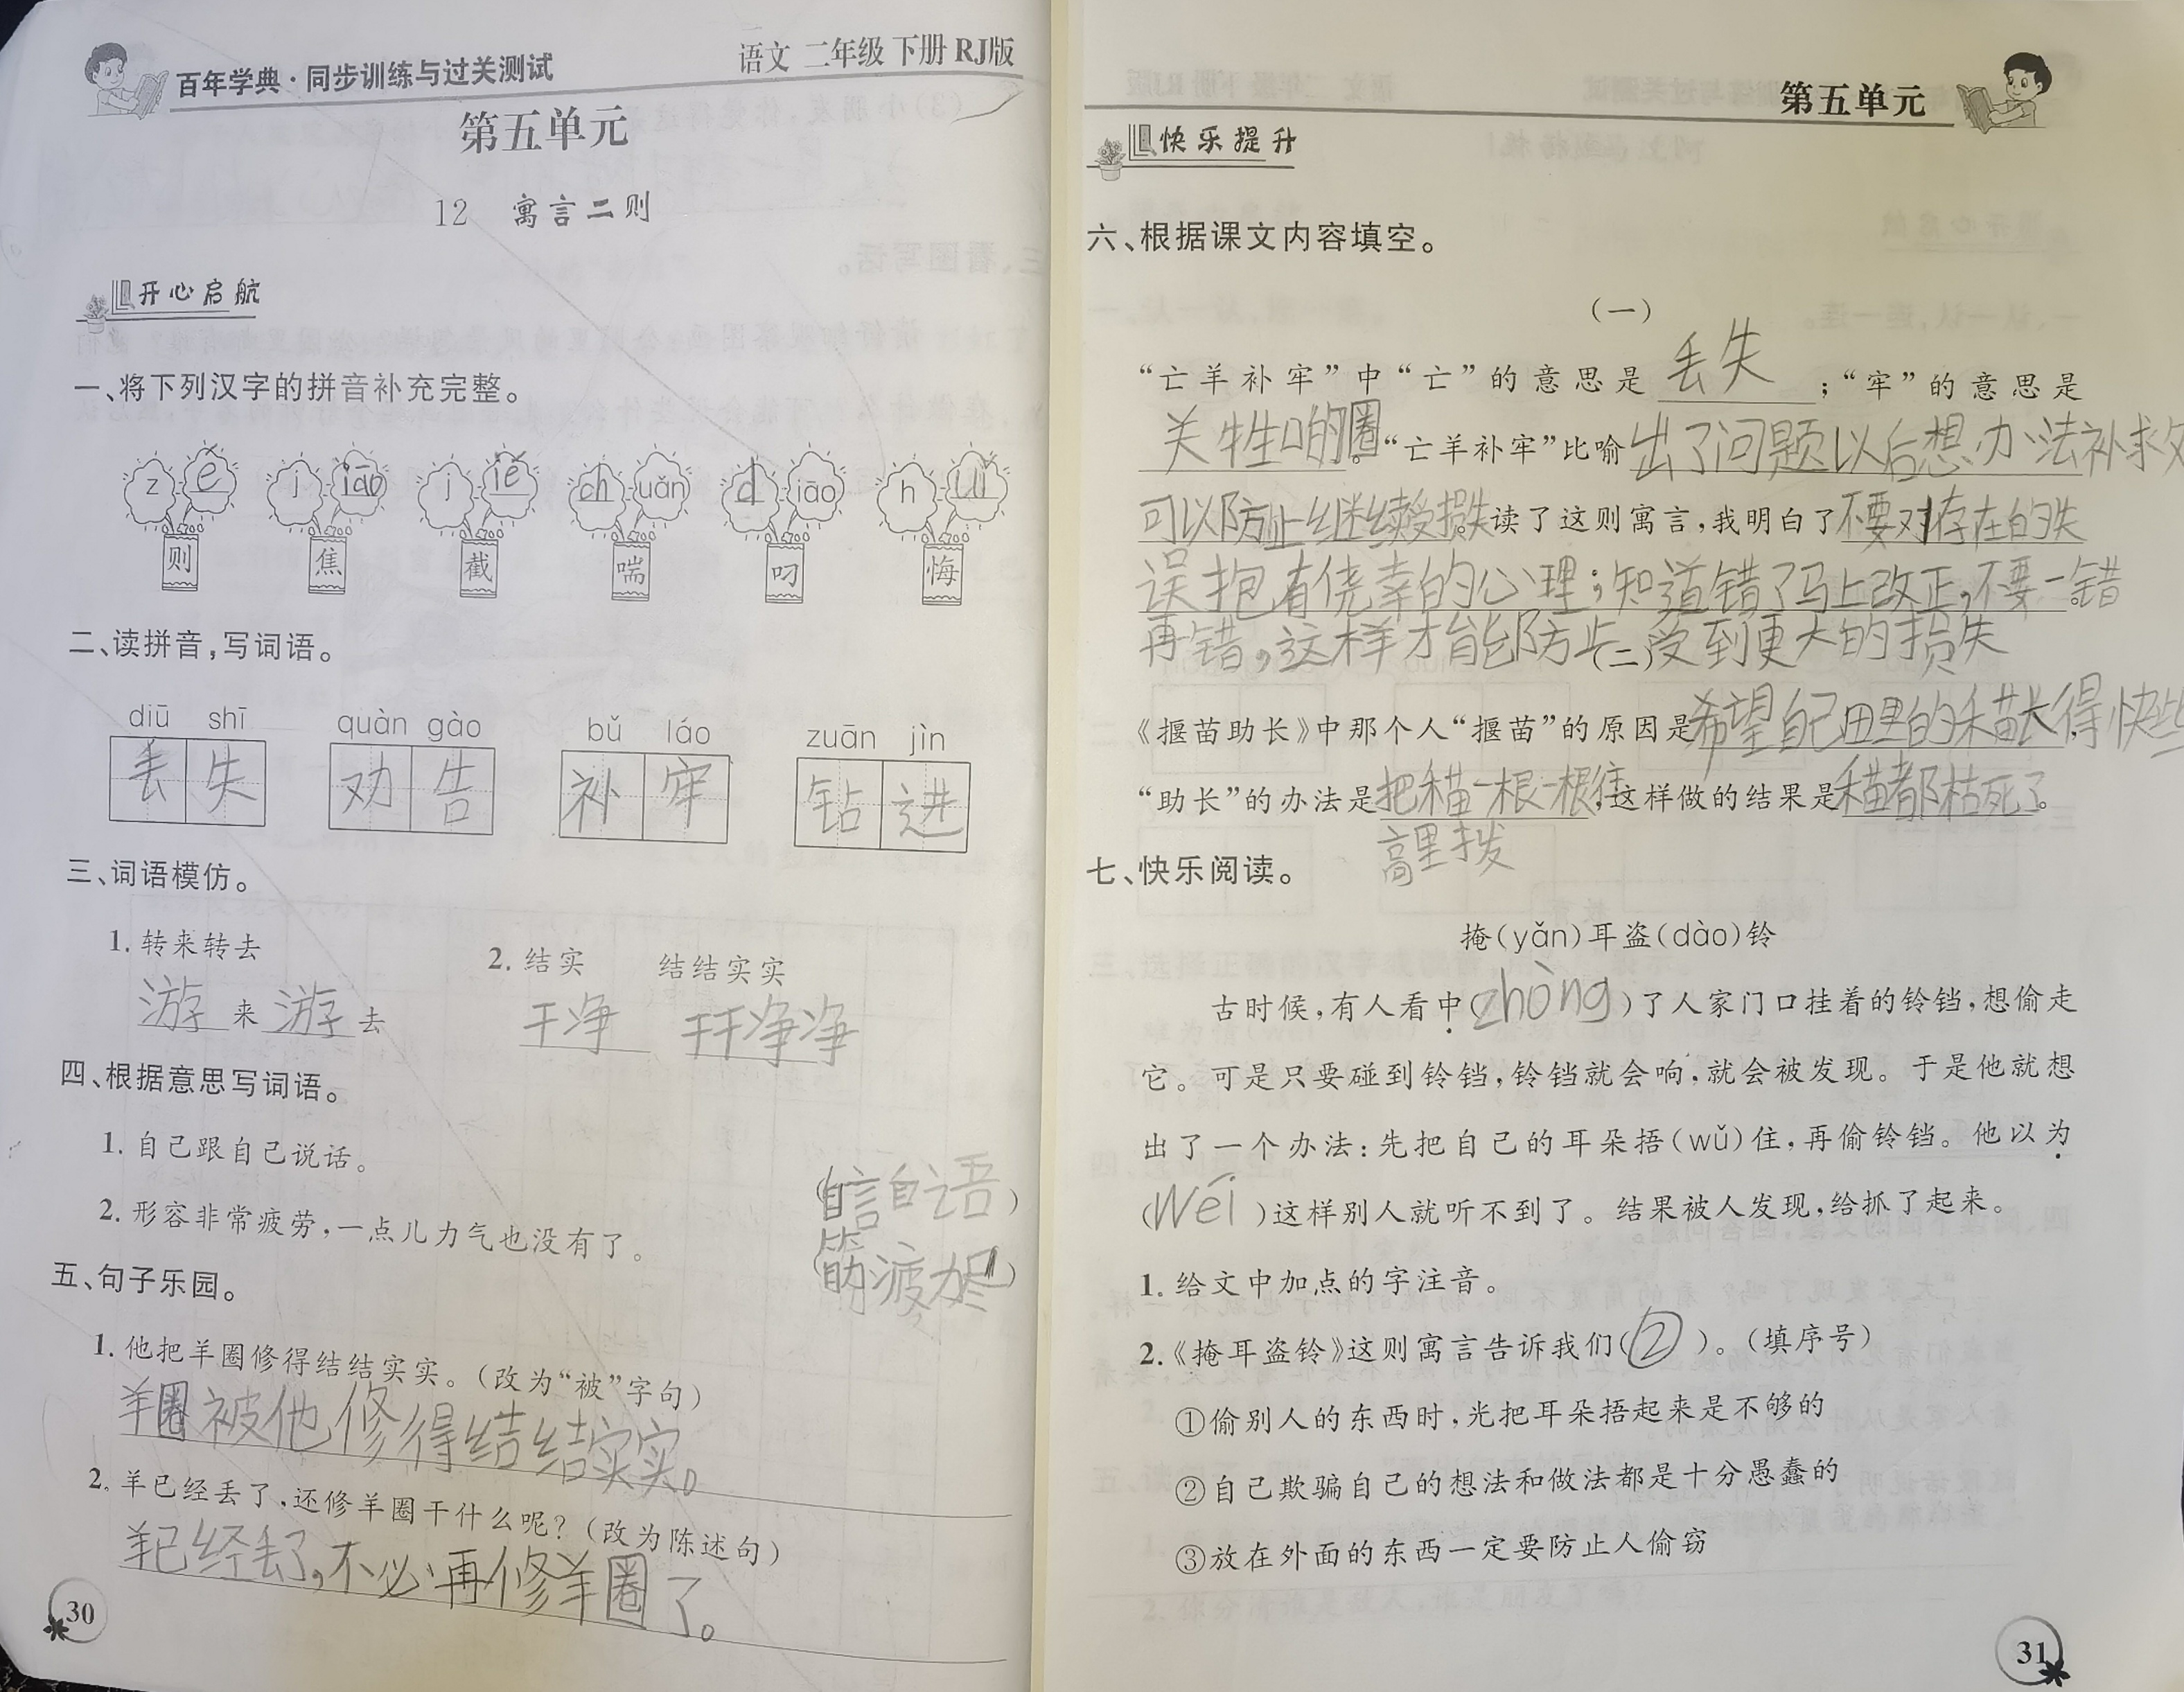 百年学典·同步训练与过关测试
语文 二年级 下册 RJ版
第五单元
12 寓言二则
开心启航
一、将下列汉字的拼音补充完整。
z é j iāo j ié ch uǎn d iāo h uǐ
则 焦 截 喘 叼 悔
二、读拼音,写词语。
diū shī quàn gào bǔ láo zuān jìn
丢失 劝告 补牢 钻进
三、词语模仿。
1. 转来转去 2. 结实 结结实实
游来游去 干净 干干净净
四、根据意思写词语。
1. 自己跟自己说话。 (自言自语)
2. 形容非常疲劳,一点儿力气也没有了。 (筋疲力尽)
五、句子乐园。
1. 他把羊圈修得结结实实。(改为“被”字句)
羊圈被他修得结结实实。
2. 羊已经丢了,还修羊圈干什么呢?(改为陈述句)
羊已经丢了,不必再修羊圈了。
30
第五单元
快乐提升
六、根据课文内容填空。
(一)
“亡羊补牢”中“亡”的意思是 丢失 ;“牢”的意思是
关牲口的圈。“亡羊补牢”比喻出了问题以后想办法补救
可以防止继续受损失。读了这则寓言,我明白了不要对存在的失
误抱有侥幸的心理;知道错了马上改正,不要一错
再错,这样才能防止受到更大的损失
(二)
《揠苗助长》中那个人“揠苗”的原因是希望自己田里的禾苗长得快些
“助长”的办法是把禾苗一根一根往,这样做的结果是禾苗都枯死了。
高里拨
七、快乐阅读。
掩(yǎn)耳盗(dào)铃
古时候,有人看中(zhòng)了人家门口挂着的铃铛,想偷走
它。可是只要碰到铃铛,铃铛就会响,就会被发现。于是他就想
出了一个办法:先把自己的耳朵捂(wǔ)住,再偷铃铛。他以为
(Wéi)这样别人就听不到了。结果被人发现,给抓了起来。
1. 给文中加点的字注音。
2.《掩耳盗铃》这则寓言告诉我们(②)。(填序号)
①偷别人的东西时,光把耳朵捂起来是不够的
②自己欺骗自己的想法和做法都是十分愚蠢的
③放在外面的东西一定要防止人偷窃
31